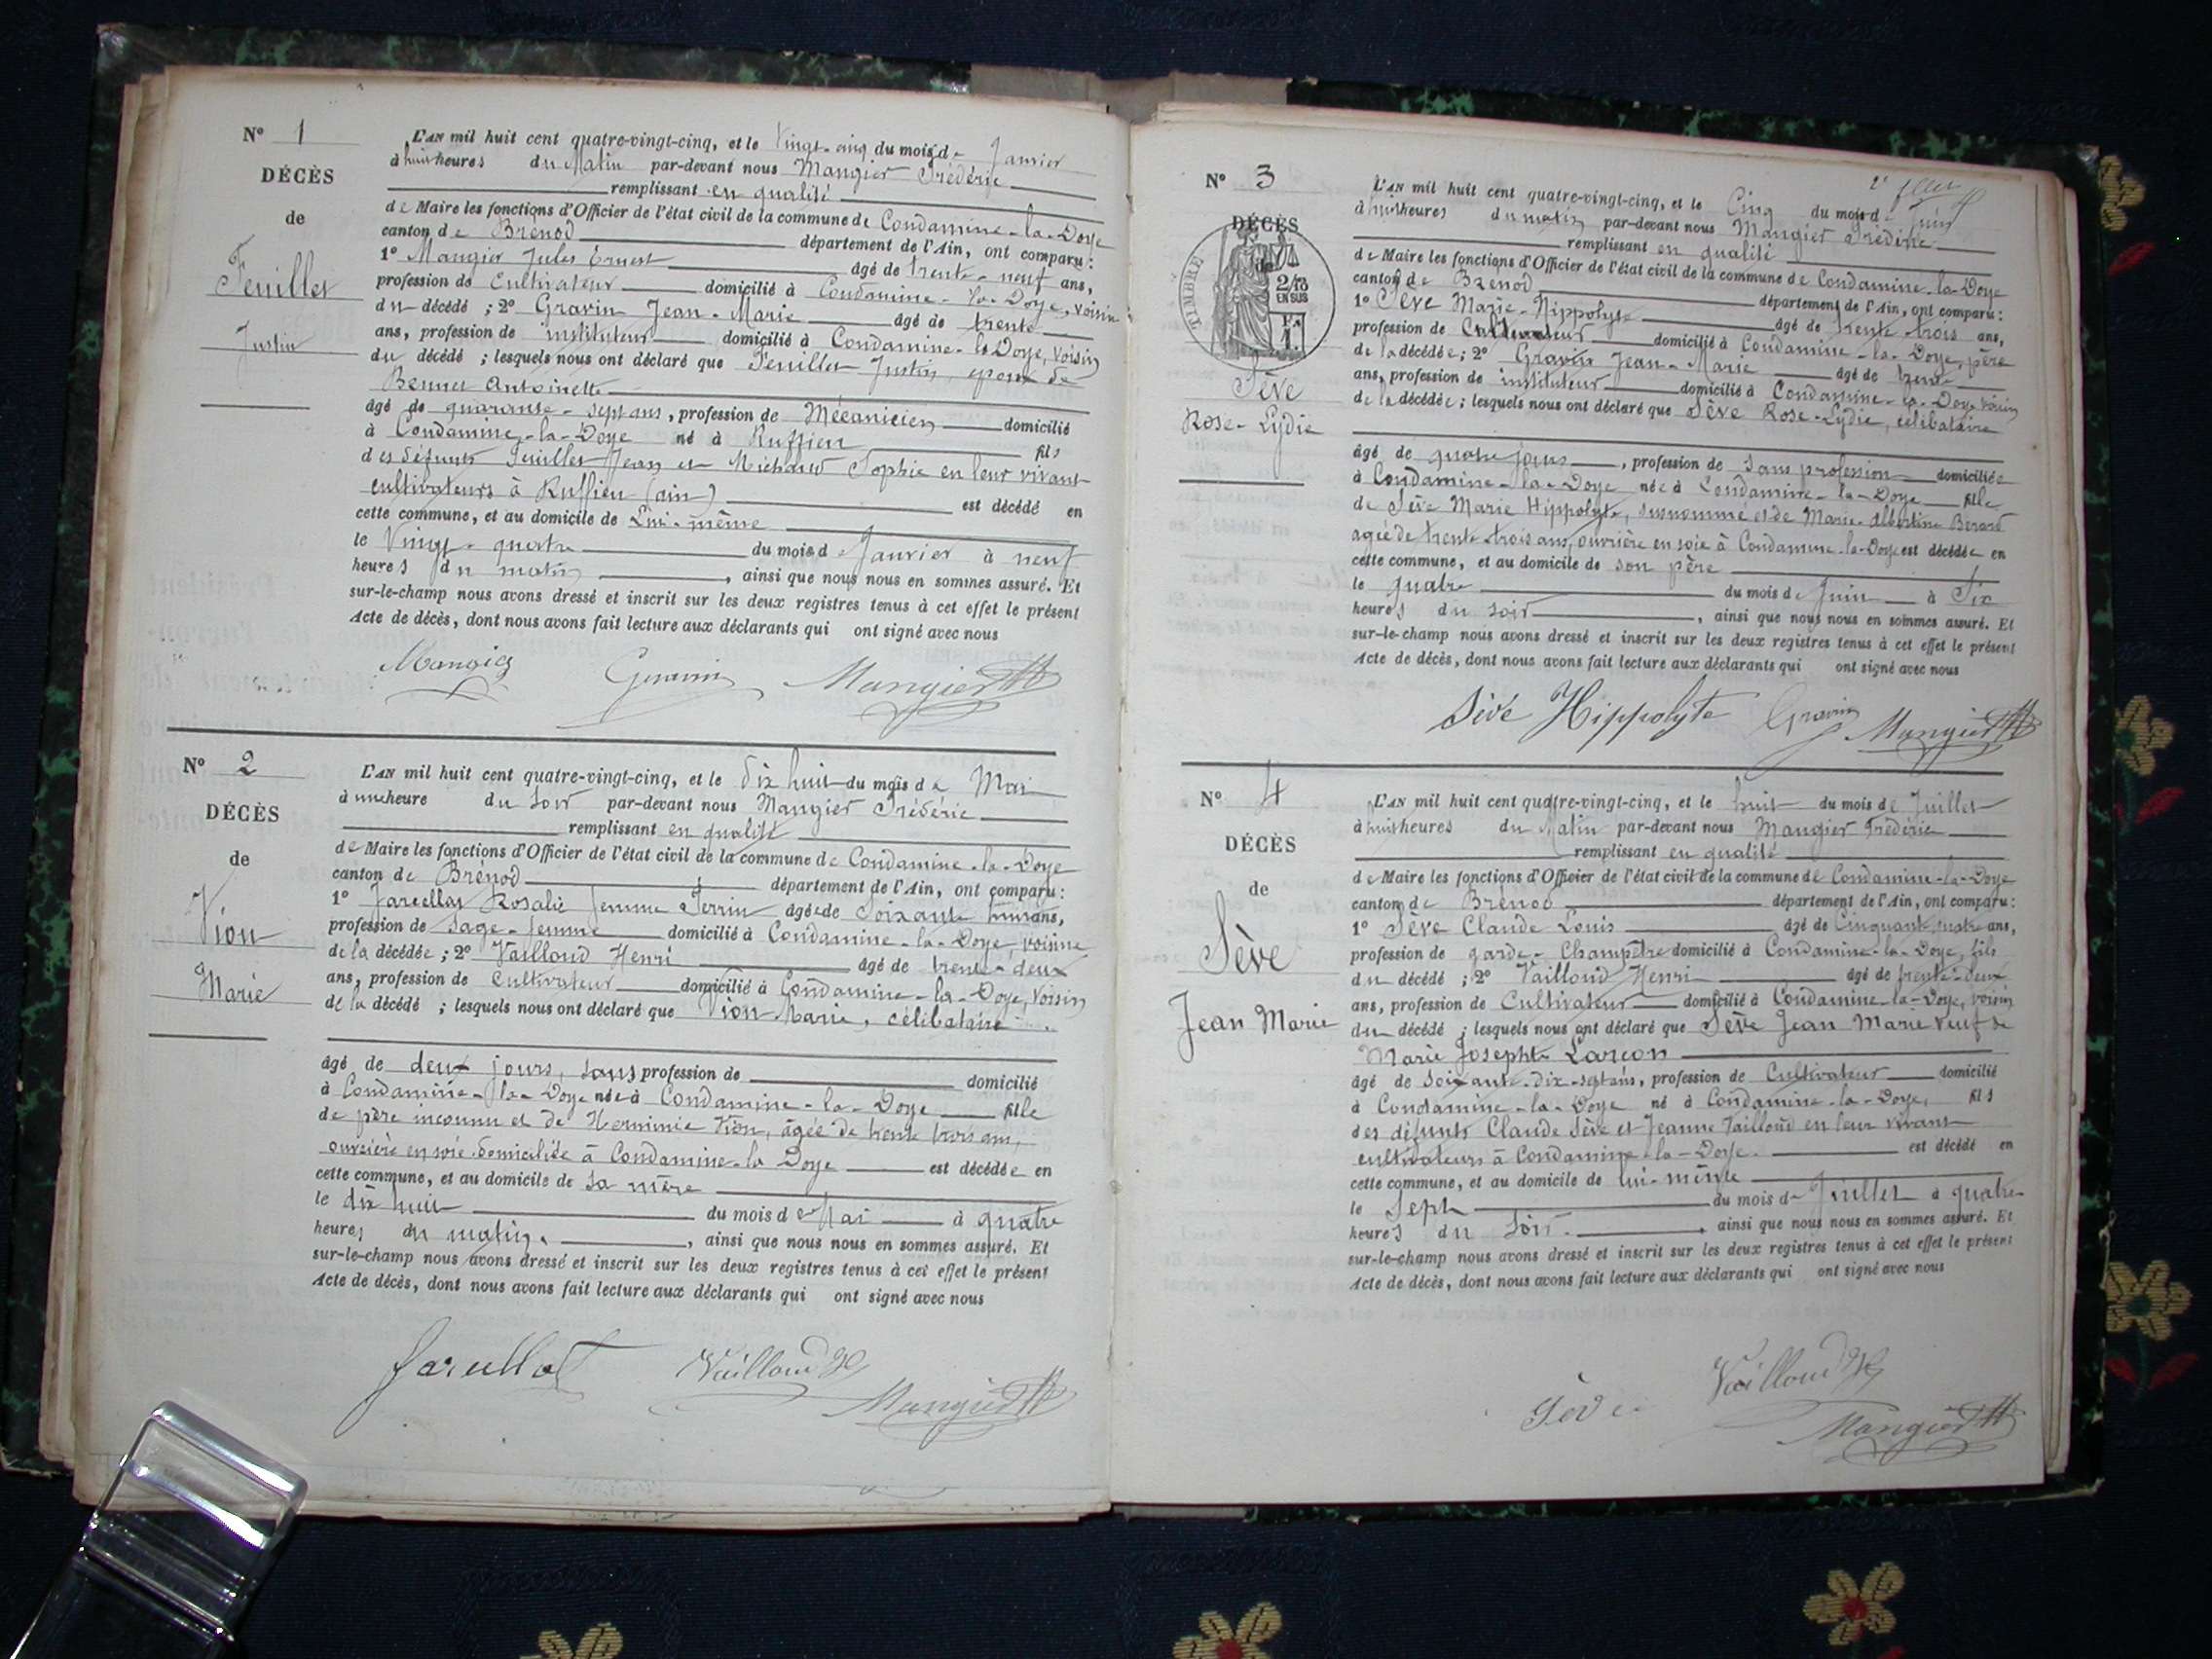 N° 1
DÉCÈS
de
Feuillet
Justin
L'AN mil huit cent quatre-vingt-cinq, et le Vingt-cinq du mois de Janvier
à huit heures du Matin par-devant nous Mangier Frédéric
remplissant en qualité
de Maire les fonctions d'Officier de l'état civil de la commune de Condamine-la-Doye
canton de Brénod département de l'Ain, ont comparu :
1° Mangier Jules Ernest âgé de trente-neuf ans,
profession de Cultivateur domicilié à Condamine-la-Doye, voisin
du décédé ; 2° Gravin Jean-Marie âgé de trente
ans, profession de instituteur domicilié à Condamine-la-Doye, voisin
du décédé ; lesquels nous ont déclaré que Feuillet Justin, époux de
Bennet Antoinette
âgé de quarante-sept ans, profession de Mécanicien domicilié
à Condamine-la-Doye né à Ruffieu fils
des défunts Feuillet Jean et Michaud Sophie en leur vivant
cultivateurs à Ruffieu (ain) est décédé en
cette commune, et au domicile de Lui-même
le Vingt-quatre du mois de Janvier à neuf
heures du matin, ainsi que nous nous en sommes assuré. Et
sur-le-champ nous avons dressé et inscrit sur les deux registres tenus à cet effet le présent
Acte de décès, dont nous avons fait lecture aux déclarants qui ont signé avec nous
Mangier Gravin Mangier
N° 2
DÉCÈS
de
Vion
Marie
L'AN mil huit cent quatre-vingt-cinq, et le dix huit du mois de Mai
à une heure du soir par-devant nous Mangier Frédéric
remplissant en qualité
de Maire les fonctions d'Officier de l'état civil de la commune de Condamine-la-Doye
canton de Brénod département de l'Ain, ont comparu :
1° Jarcellat Rosalie femme Perrin âgée de Soixante ans,
profession de Sage-femme domicilié à Condamine-la-Doye voisine
de la décédée ; 2° Vailloud Henri âgé de trente-deux
ans, profession de Cultivateur domicilié à Condamine-la-Doye, Voisin
de la décédé ; lesquels nous ont déclaré que Vion Marie, célibataire
âgé de deux jours, sans profession de domicilié
à Condamine-la-Doye née à Condamine-la-Doye fille
de père inconnu et de Herminie Vion, âgée de trente trois ans,
ouvrière en soie domiciliée à Condamine-la Doye est décédée en
cette commune, et au domicile de sa mère
le dix huit du mois de Mai à quatre
heures du matin, ainsi que nous nous en sommes assuré. Et
sur-le-champ nous avons dressé et inscrit sur les deux registres tenus à cet effet le présent
Acte de décès, dont nous avons fait lecture aux déclarants qui ont signé avec nous
Jarcellat Vailloud H Mangier
2e fllet
N° 3
DÉCÈS
de
TIMBRE
2/10
EN SUS
Sève
Rose-Lydie
L'AN mil huit cent quatre-vingt-cinq, et le Cinq du mois de Juin
à huit heures du matin par-devant nous Mangier Frédéric
remplissant en qualité
de Maire les fonctions d'Officier de l'état civil de la commune de Condamine-la-Doye
canton de Brénod département de l'Ain, ont comparu :
1° Sève Marie-Hippolyte âgé de trente-trois ans,
profession de Cultivateur domicilié à Condamine-la-Doye, père
de la décédée ; 2° Gravin Jean-Marie âgé de trente
ans, profession de instituteur domicilié à Condamine-la-Doye voisin
de la décédée ; lesquels nous ont déclaré que Sève Rose-Lydie, célibataire
âgé de quatre jours, profession de sans profession domiciliée
à Condamine-la-Doye née à Condamine-la-Doye fille
de Sève Marie Hippolyte, susnommé et de Marie-Albertine Berard
agée de trente-trois ans, ouvrière en soie à Condamine-la-Doye est décédée en
cette commune, et au domicile de son père
le quatre du mois de Juin à Six
heures du soir, ainsi que nous nous en sommes assuré. Et
sur-le-champ nous avons dressé et inscrit sur les deux registres tenus à cet effet le présent
Acte de décès, dont nous avons fait lecture aux déclarants qui ont signé avec nous
Sève Hippolyte Gravin Mangier
N° 4
DÉCÈS
de
Sève
Jean Marie
L'AN mil huit cent quatre-vingt-cinq, et le huit du mois de Juillet
à huit heures du Matin par-devant nous Mangier Frédéric
remplissant en qualité
de Maire les fonctions d'Officier de l'état civil de la commune de Condamine-la-Doye
canton de Brénod département de l'Ain, ont comparu :
1° Sève Claude Louis âgé de Cinquante quatre ans,
profession de garde-Champêtre domicilié à Condamine-la-Doye, fils
du décédé ; 2° Vailloud Henri âgé de trente-deux
ans, profession de Cultivateur domicilié à Condamine-la-Doye, voisin
du décédé ; lesquels nous ont déclaré que Sève Jean Marie veuf de
Marie Josephte Larçon
âgé de soixante-dix-sept ans, profession de Cultivateur domicilié
à Condamine-la-Doye né à Condamine-la-Doye, fils
des défunts Claude Sève et Jeanne Vailloud en leur vivant
cultivateurs à Condamine-la-Doye. est décédé en
cette commune, et au domicile de lui-même
le Sept du mois de Juillet à quatre
heures du soir. ainsi que nous nous en sommes assuré. Et
sur-le-champ nous avons dressé et inscrit sur les deux registres tenus à cet effet le présent
Acte de décès, dont nous avons fait lecture aux déclarants qui ont signé avec nous
Sève Vailloud H Mangier